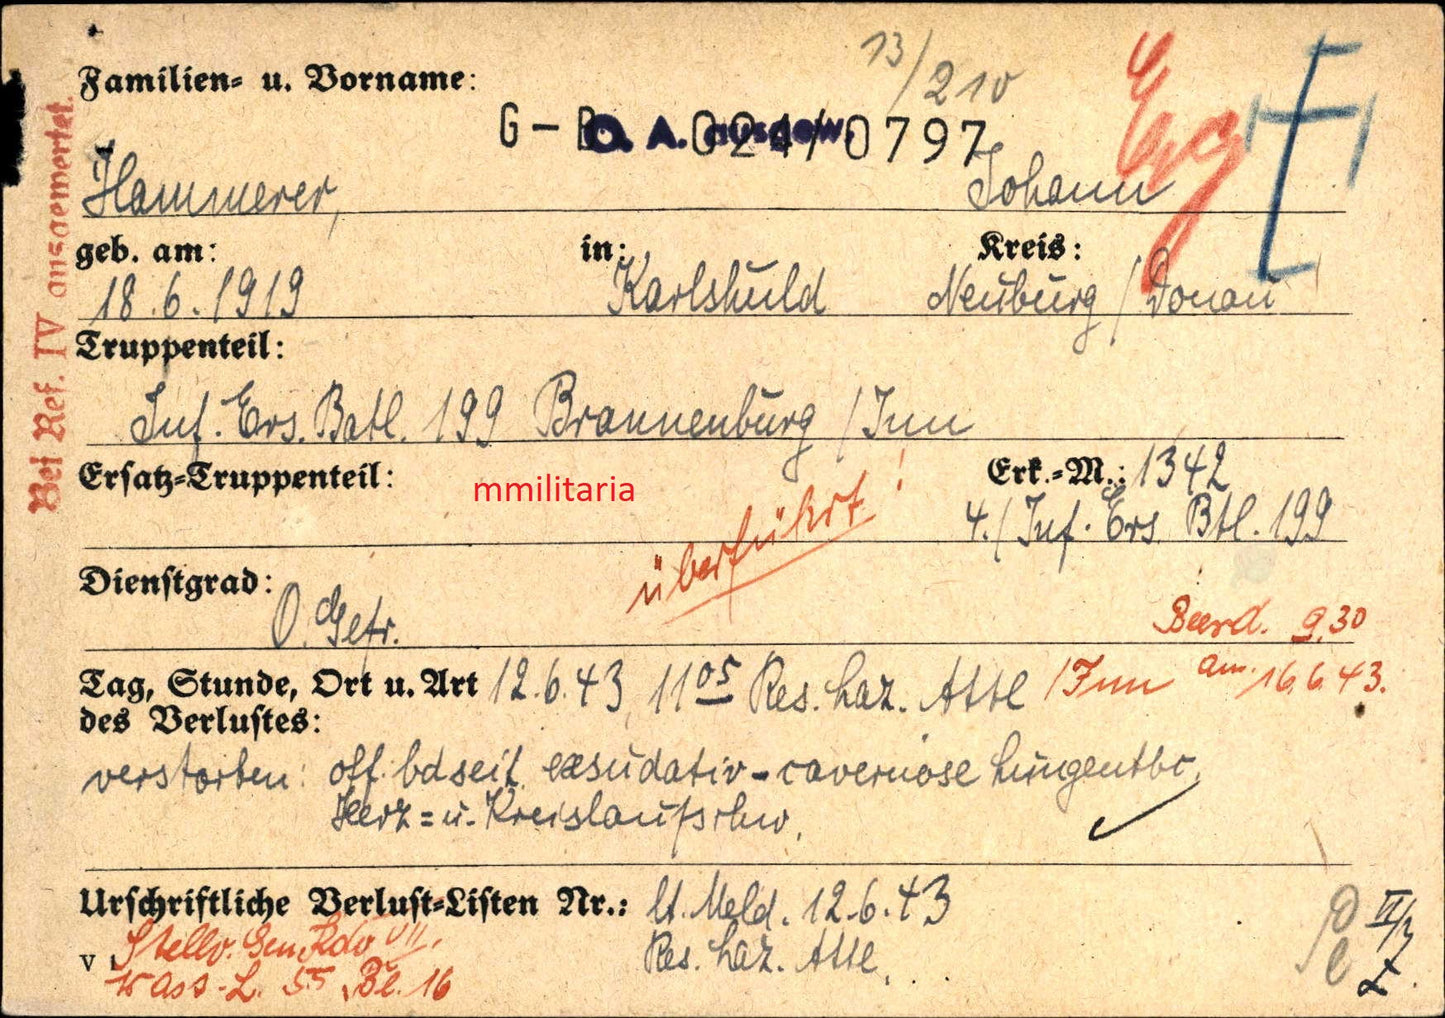 13/210
Familien- u. Vorname:
G-B 024/0797
D. A. ausgew.
Hammerer, Johann
geb. am: in: Kreis:
18.6.1919 Karlshuld Neuburg / Donau
Truppenteil:
Inf. Ers. Batl. 199 Brannenburg / Inn
Ersatz-Truppenteil: Erk.-M.: 1342
mmilitaria
4./ Inf. Ers. Btl. 199
überführt!
Dienstgrad:
O. Gefr.
Beerd. 9.30
am. 16.6.43.
Tag, Stunde, Ort u. Art 12.6.43 11 05 Res. Laz. Attl /Inn
des Verlustes:
verstorben: off. bdseit. exsudativ-cavernöse Lungentbc,
Herz= u. Kreislaufschw.
Urschriftliche Verlust-Listen Nr.: lt. Meld. 12.6.43
Res. Laz. Attl.
v. Stellv. Gen Kdo VII.
Wass-L. 55, Bl. 16
Bei Ref. IV ausgewertet.